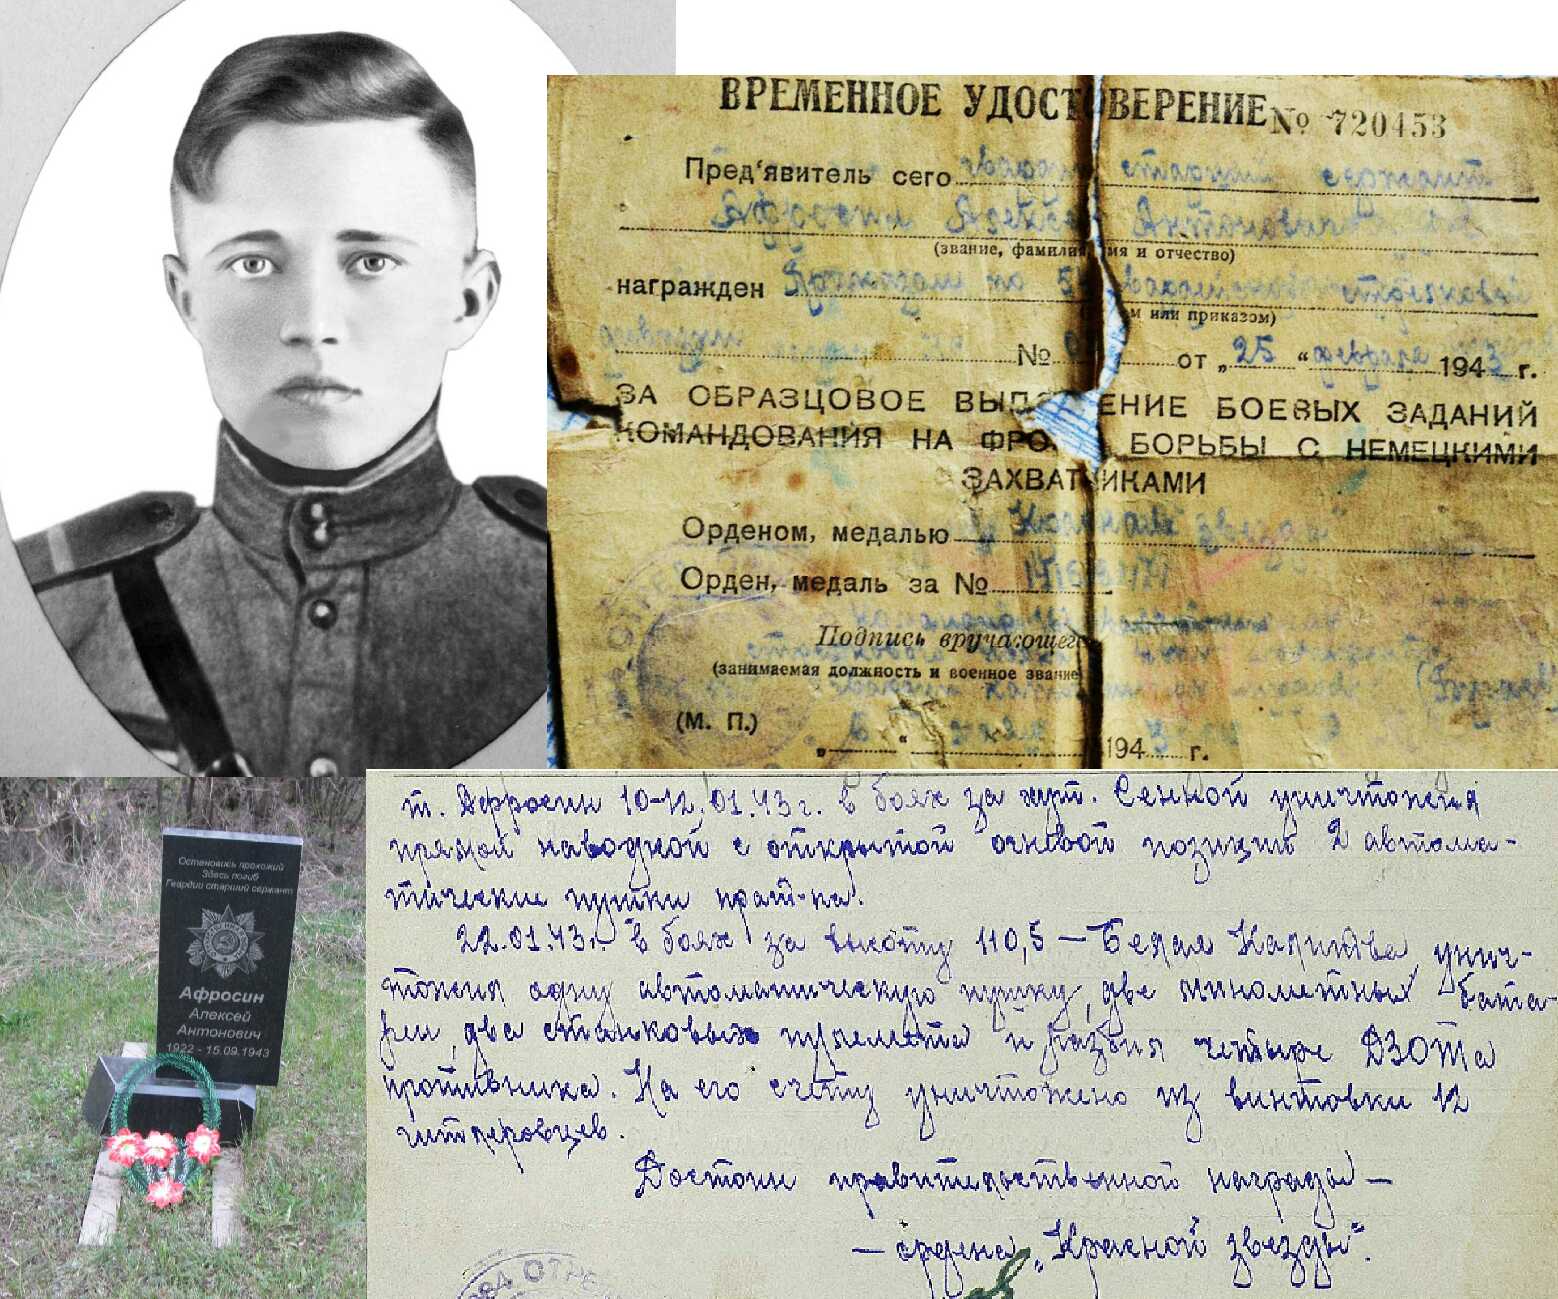 ВРЕМЕННОЕ УДОСТОВЕРЕНИЕ № 720453
Пред'явитель сего гвардии старший сержант
Афросин Алексей Антонович
(звание, фамилия, имя и отчество)
награжден Приказом по
м или приказом)
№ от „25“ февраля 1943 г.
ЗА ОБРАЗЦОВОЕ ВЫПОЛНЕНИЕ БОЕВЫХ ЗАДАНИЙ
КОМАНДОВАНИЯ НА ФРОНТЕ БОРЬБЫ С НЕМЕЦКИМИ
ЗАХВАТЧИКАМИ
Орденом, медалью „Красная звезда“
Орден, медаль за №
Подпись вручающего
(занимаемая должность и военное звание
(М. П.)
„ “ 194 г.
Остановись прохожий
Здесь погиб
Гвардии старший сержант
Афросин
Алексей
Антонович
1922 - 15.09.1943
т. Афросин 10-12.01.43г. в боях за хут. Сенной уничтожил
прямой наводкой с открытой огневой позиции 2 автома-
тические пушки прот-ка.
22.01.43г. в боях за высоту 110,5 – Белая Калитва, унич-
тожил одну автоматическую пушку, две минометных бата-
реи, два станковых пулемета и разбил четыре ДЗОТа
противника. На его счету уничтожено из винтовки 12
гитлеровцев.
Достоин правительственной награды –
– ордена „Красной звезды“.
ОТРЕ